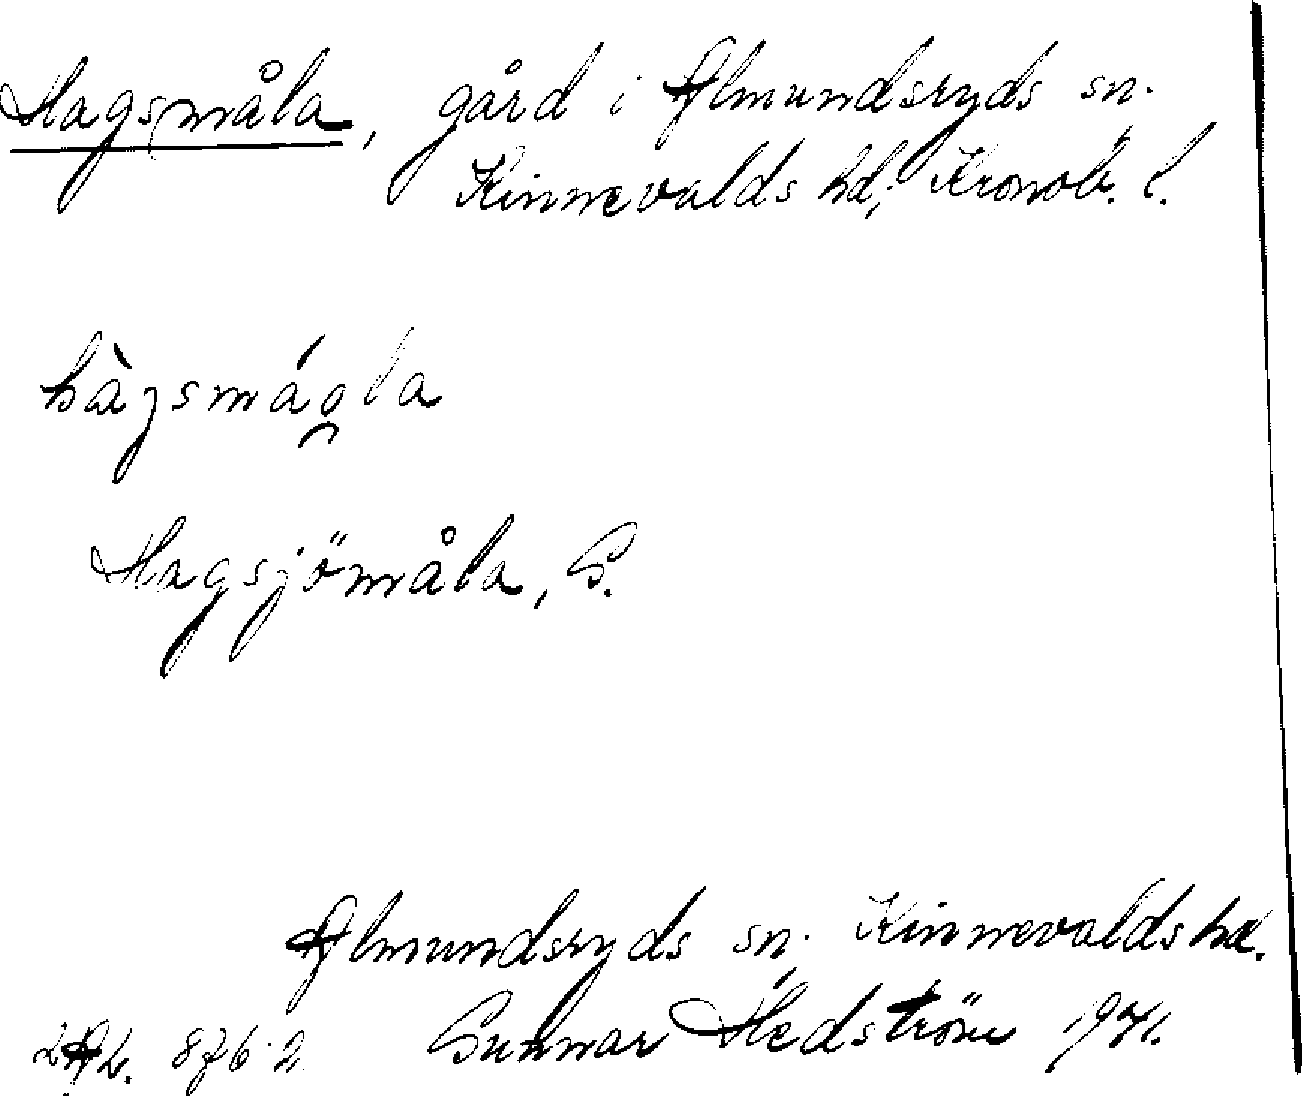 Hagsmåla, gård i Almundsryds sn.
Kinnevalds hd, Kronob. l.
hàgsmáo̯la
Hagsjömåla, S.
Almundsryds sn. Kinnevalds hd.
Gunnar Hedström 1941.